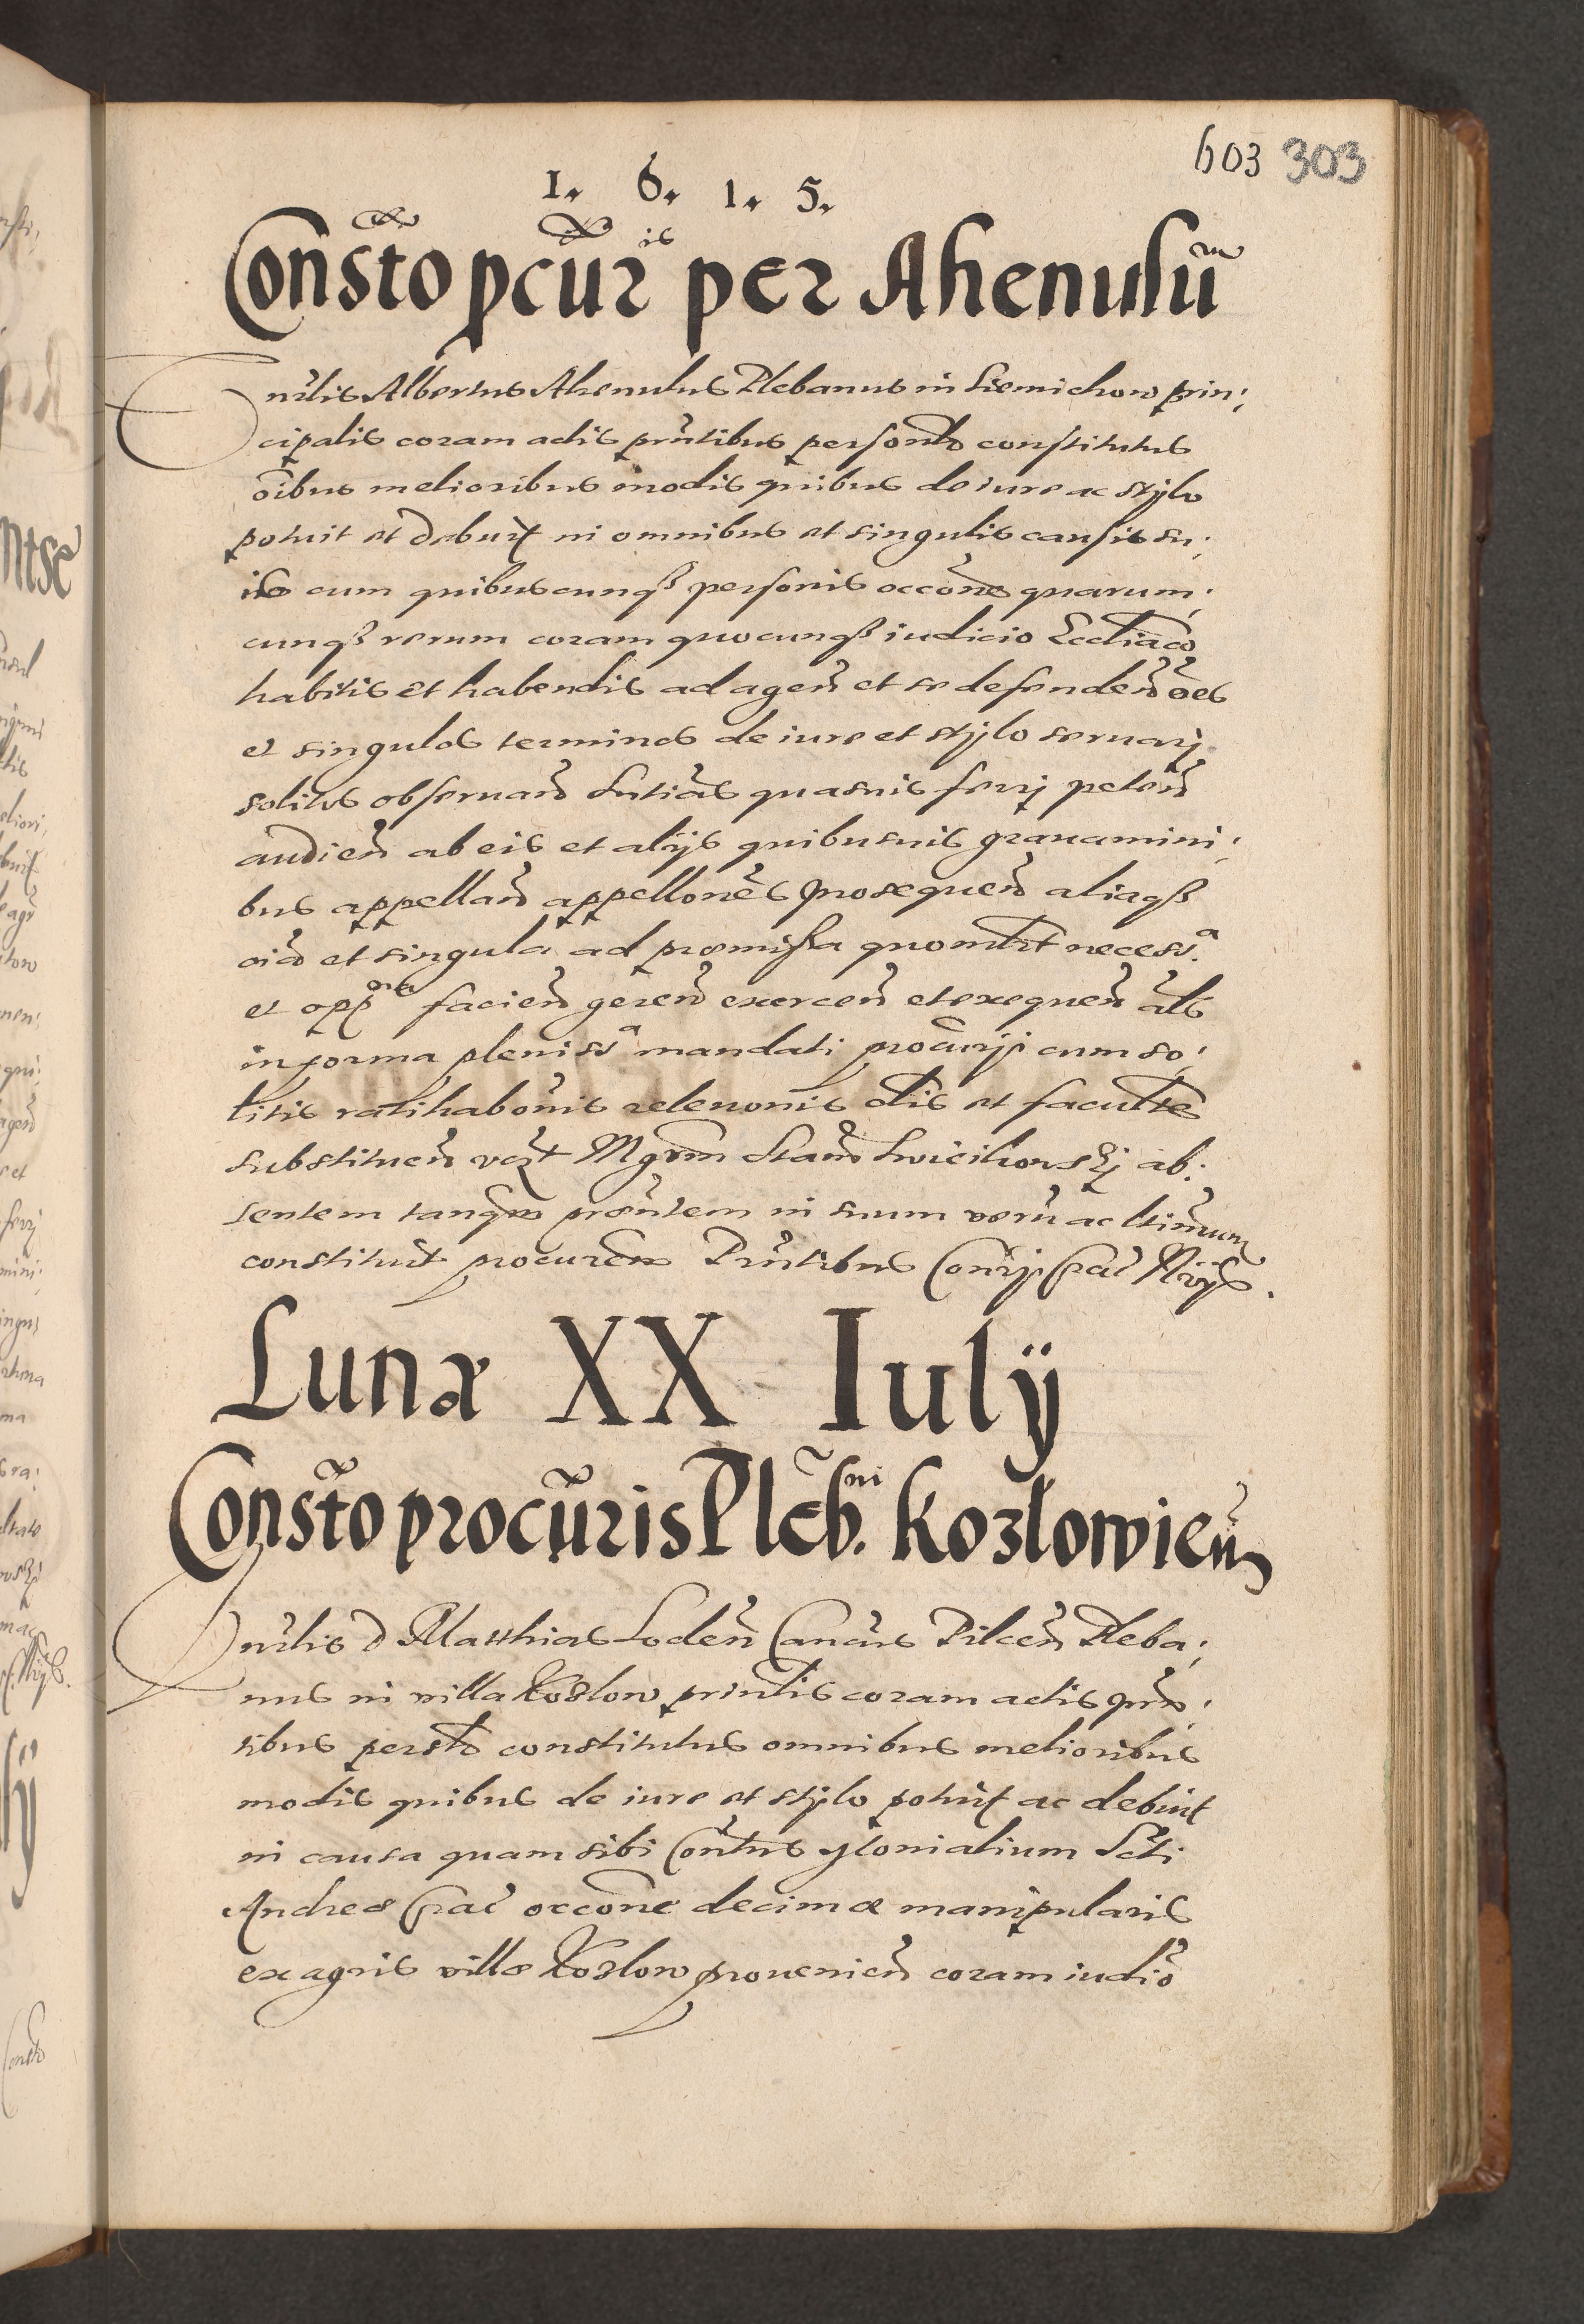 603 303
1. 6. 1. 5.
Consto̅ pcur̅is per Ahenulu̅m
Dnr̅lis Albertus Ahenulus Plebanus in Siemichow prin;
cipalis coram actis pn̅tibus personlr̅ constitutus
oi̅bus melioribus modis quibus de iure ac stylo
potuit et debuit in omnibus et singulis causis su;
is cum quibuscunqȝ personis occo̅ne quarum;
cunqȝ rerum coram quocunqȝ iudicio Eccl̅iaco
habitis et habendis ad agen̅ et se defenden̅ oe̅s
et singulos terminos de iure et stylo seruarj
solitos obseruan̅ Sn̅tias quasuis ferrj peten̅
audien̅ ab eis et alijs quibusuis grauamini;
bus appellan̅ appello̅nes prosequen̅ aliaqȝ
oi̅a et singula ad praemissa quomlt̅ necess.a
et opp̅ facien̅ geren̅ exercen̅ et exequen̅ al̅s
in forma pleniss.a mandati procur̅ij cum so;
litis ratihabo̅nis releuonis cl̅is et faculte̅
substituen̅ Mgrm̅ Stan̅
sentem tanq̅ prae̅ntem in suum veru̅ ac ltimum
constituit procurem̅ Pn̅tibus
Lunæ XX Iulij
Consto̅ procur̅is Pleb̅.ni Kozlowien̅
Dnr̅lis D Matthias Loden̅ Can̅cus Pilcen̅ Pleba;
nus in villa Kozlow prin̅lis coram actis prn̅;
tibus perslr̅ constitutus omnibus melioribus
modis quibus de iure et stylo potuit ac debuit
in causa quam sibi Con̅tus Monialium Scti̅
Andreæ Crac̅ occo̅ne decimæ manipularis
ex agris villæ Kozlow prouenien̅ coram iudi̅o